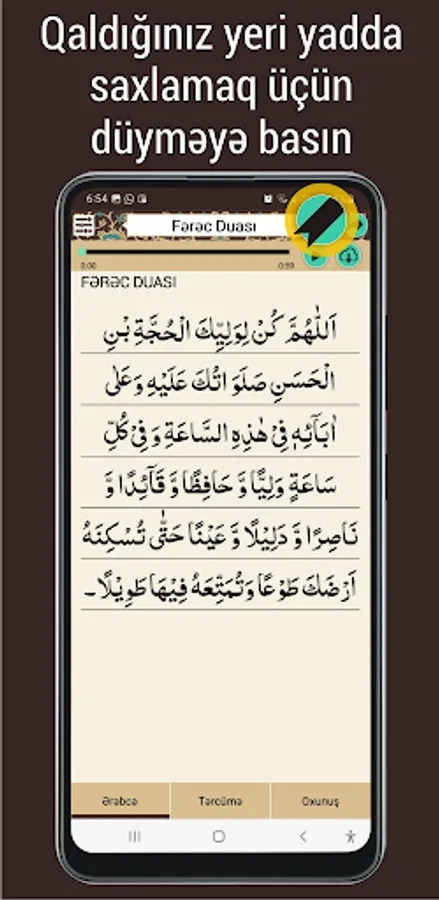 Qaldığınız yeri yadda
saxlamaq üçün
düyməyə basın
6:54
Fərəc Duası
0:00 0:59
FƏRƏC DUASI
اَللّٰهُمَّ كُنْ لِوَلِيِّكَ الْحُجَّةِ بْنِ
الْحَسَنِ صَلَوَاتُكَ عَلَيْهِ وَعَلٰى
اٰبَآئِهٖ فِيْ هٰذِهِ السَّاعَةِ وَ فِيْ كُلِّ
سَاعَةٍ وَلِيًّا وَّ حَافِظًا وَّ قَآئِدًا وَّ
نَاصِرًا وَّ دَلِيْلًا وَّ عَيْنًا حَتّٰى تُسْكِنَهٗ
اَرْضَكَ طَوْعًا وَتُمَتِّعَهٗ فِيْهَا طَوِيْلًا۔
Ərəbcə Tərcümə Oxunuş